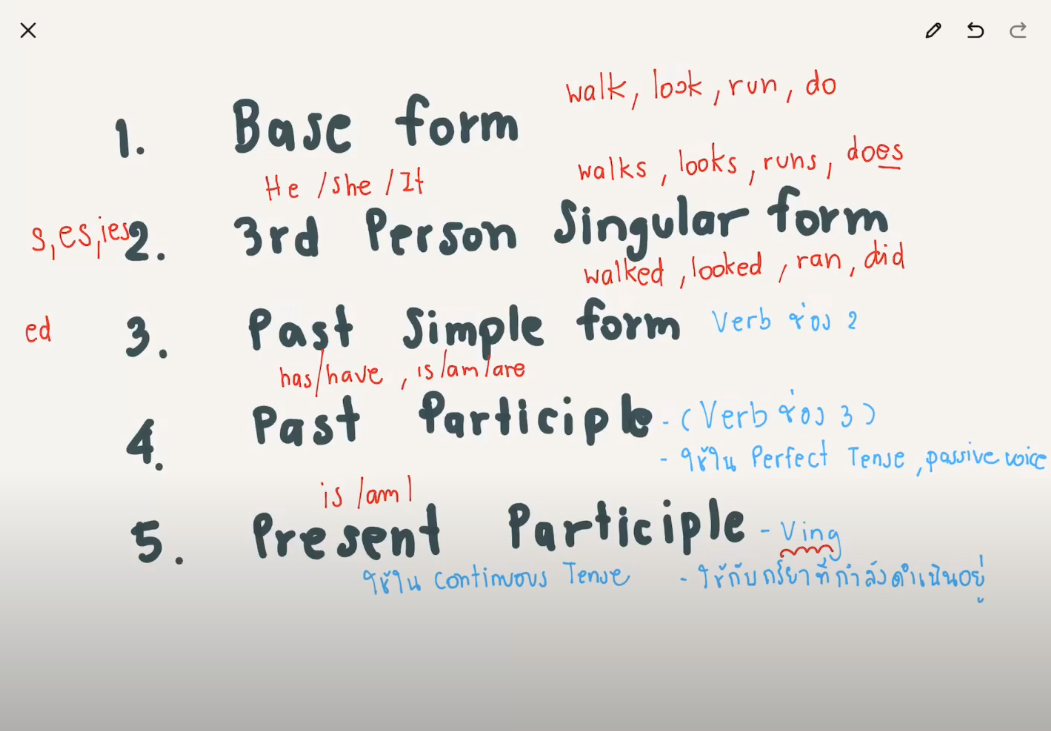 walk, look, run, do
1. Base form
walks, looks, runs, does
He /she /It
s,es,ies 2. 3rd Person Singular form
walked, looked, ran, did
ed 3. Past Simple form Verb ช่อง 2
has/have, is/am/are
4. Past Participle - (Verb ช่อง 3)
- ใช้ใน Perfect Tense, passive voice
is /am/
5. Present Participle - Ving
ใช้ใน Continuous Tense - ใช้กับกริยาที่กำลังดำเนินอยู่